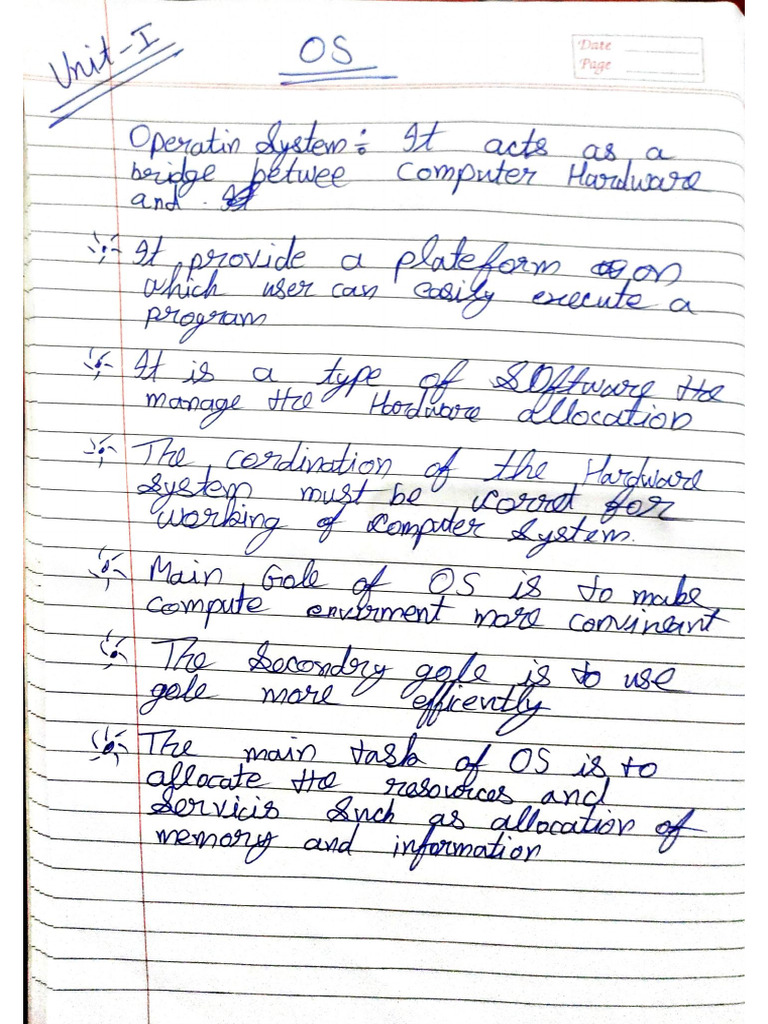 Unit-I
OS
Date
Page
Operatin System: It acts as a
bridge betwee Computer Hardware
and .
It provide a plateform on
which user can easily execute a
program
It is a type of SOftware the
manage the Hordware allocation
The cordination of the Hardware
System must be corret for
working of computer System.
Main Gole of OS is to make
compute envirment more convineant
The Secondry gole is to use
gole more efficently
The main task of OS is to
allocate the resources and
Servicis Such as allocation of
memory and information